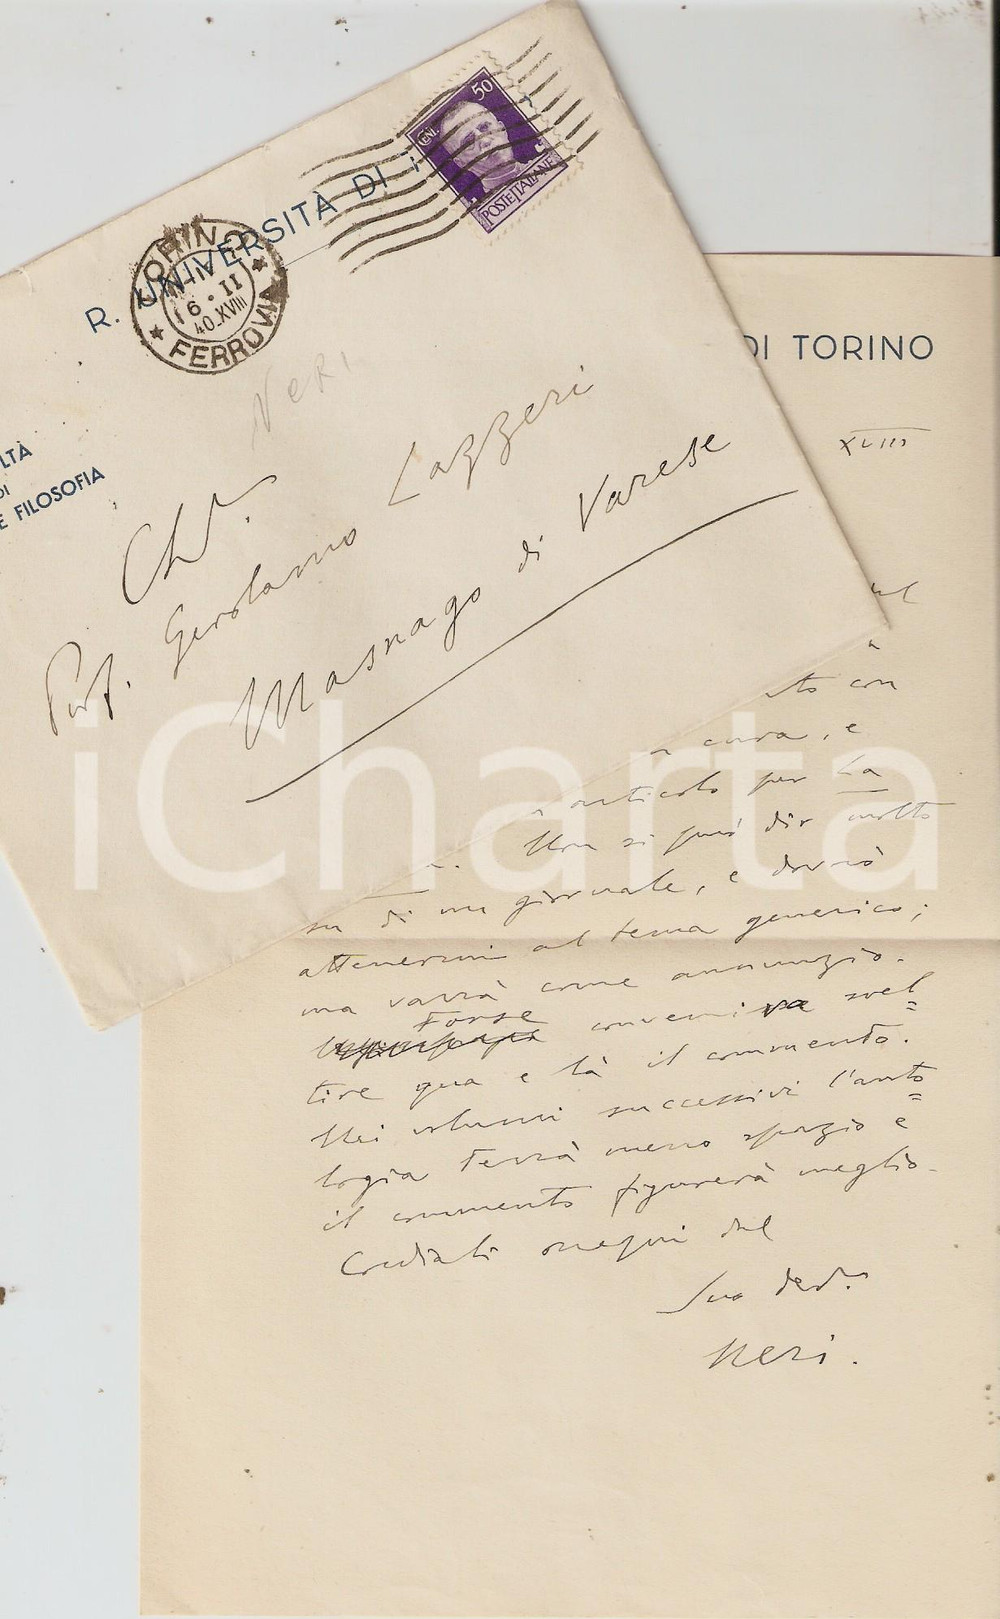 R. UNIVERSITÀ DI
CENT. 50
POSTE ITALIANE
TORINO
16·II
40_XVIII
FERROVIA
NERI
LTÀ
DI
E FILOSOFIA
Ch.
Prof. Gerolamo Lazzeri
Masnago di Varese
DI TORINO
XVIII
con
cura, e
articolo per La
Non si può dir molto
su di un giornale, e dovrò
attenermi al tema generico;
ma varrà come annunzio.
Forse conveniva svel=
tire qua e là il commento.
Nei volumi successivi l'anto=
logia terrà meno spazio e
il commento figurerà meglio.
Cordiali ossequi dal
Suo dev.
Neri.
iCharta